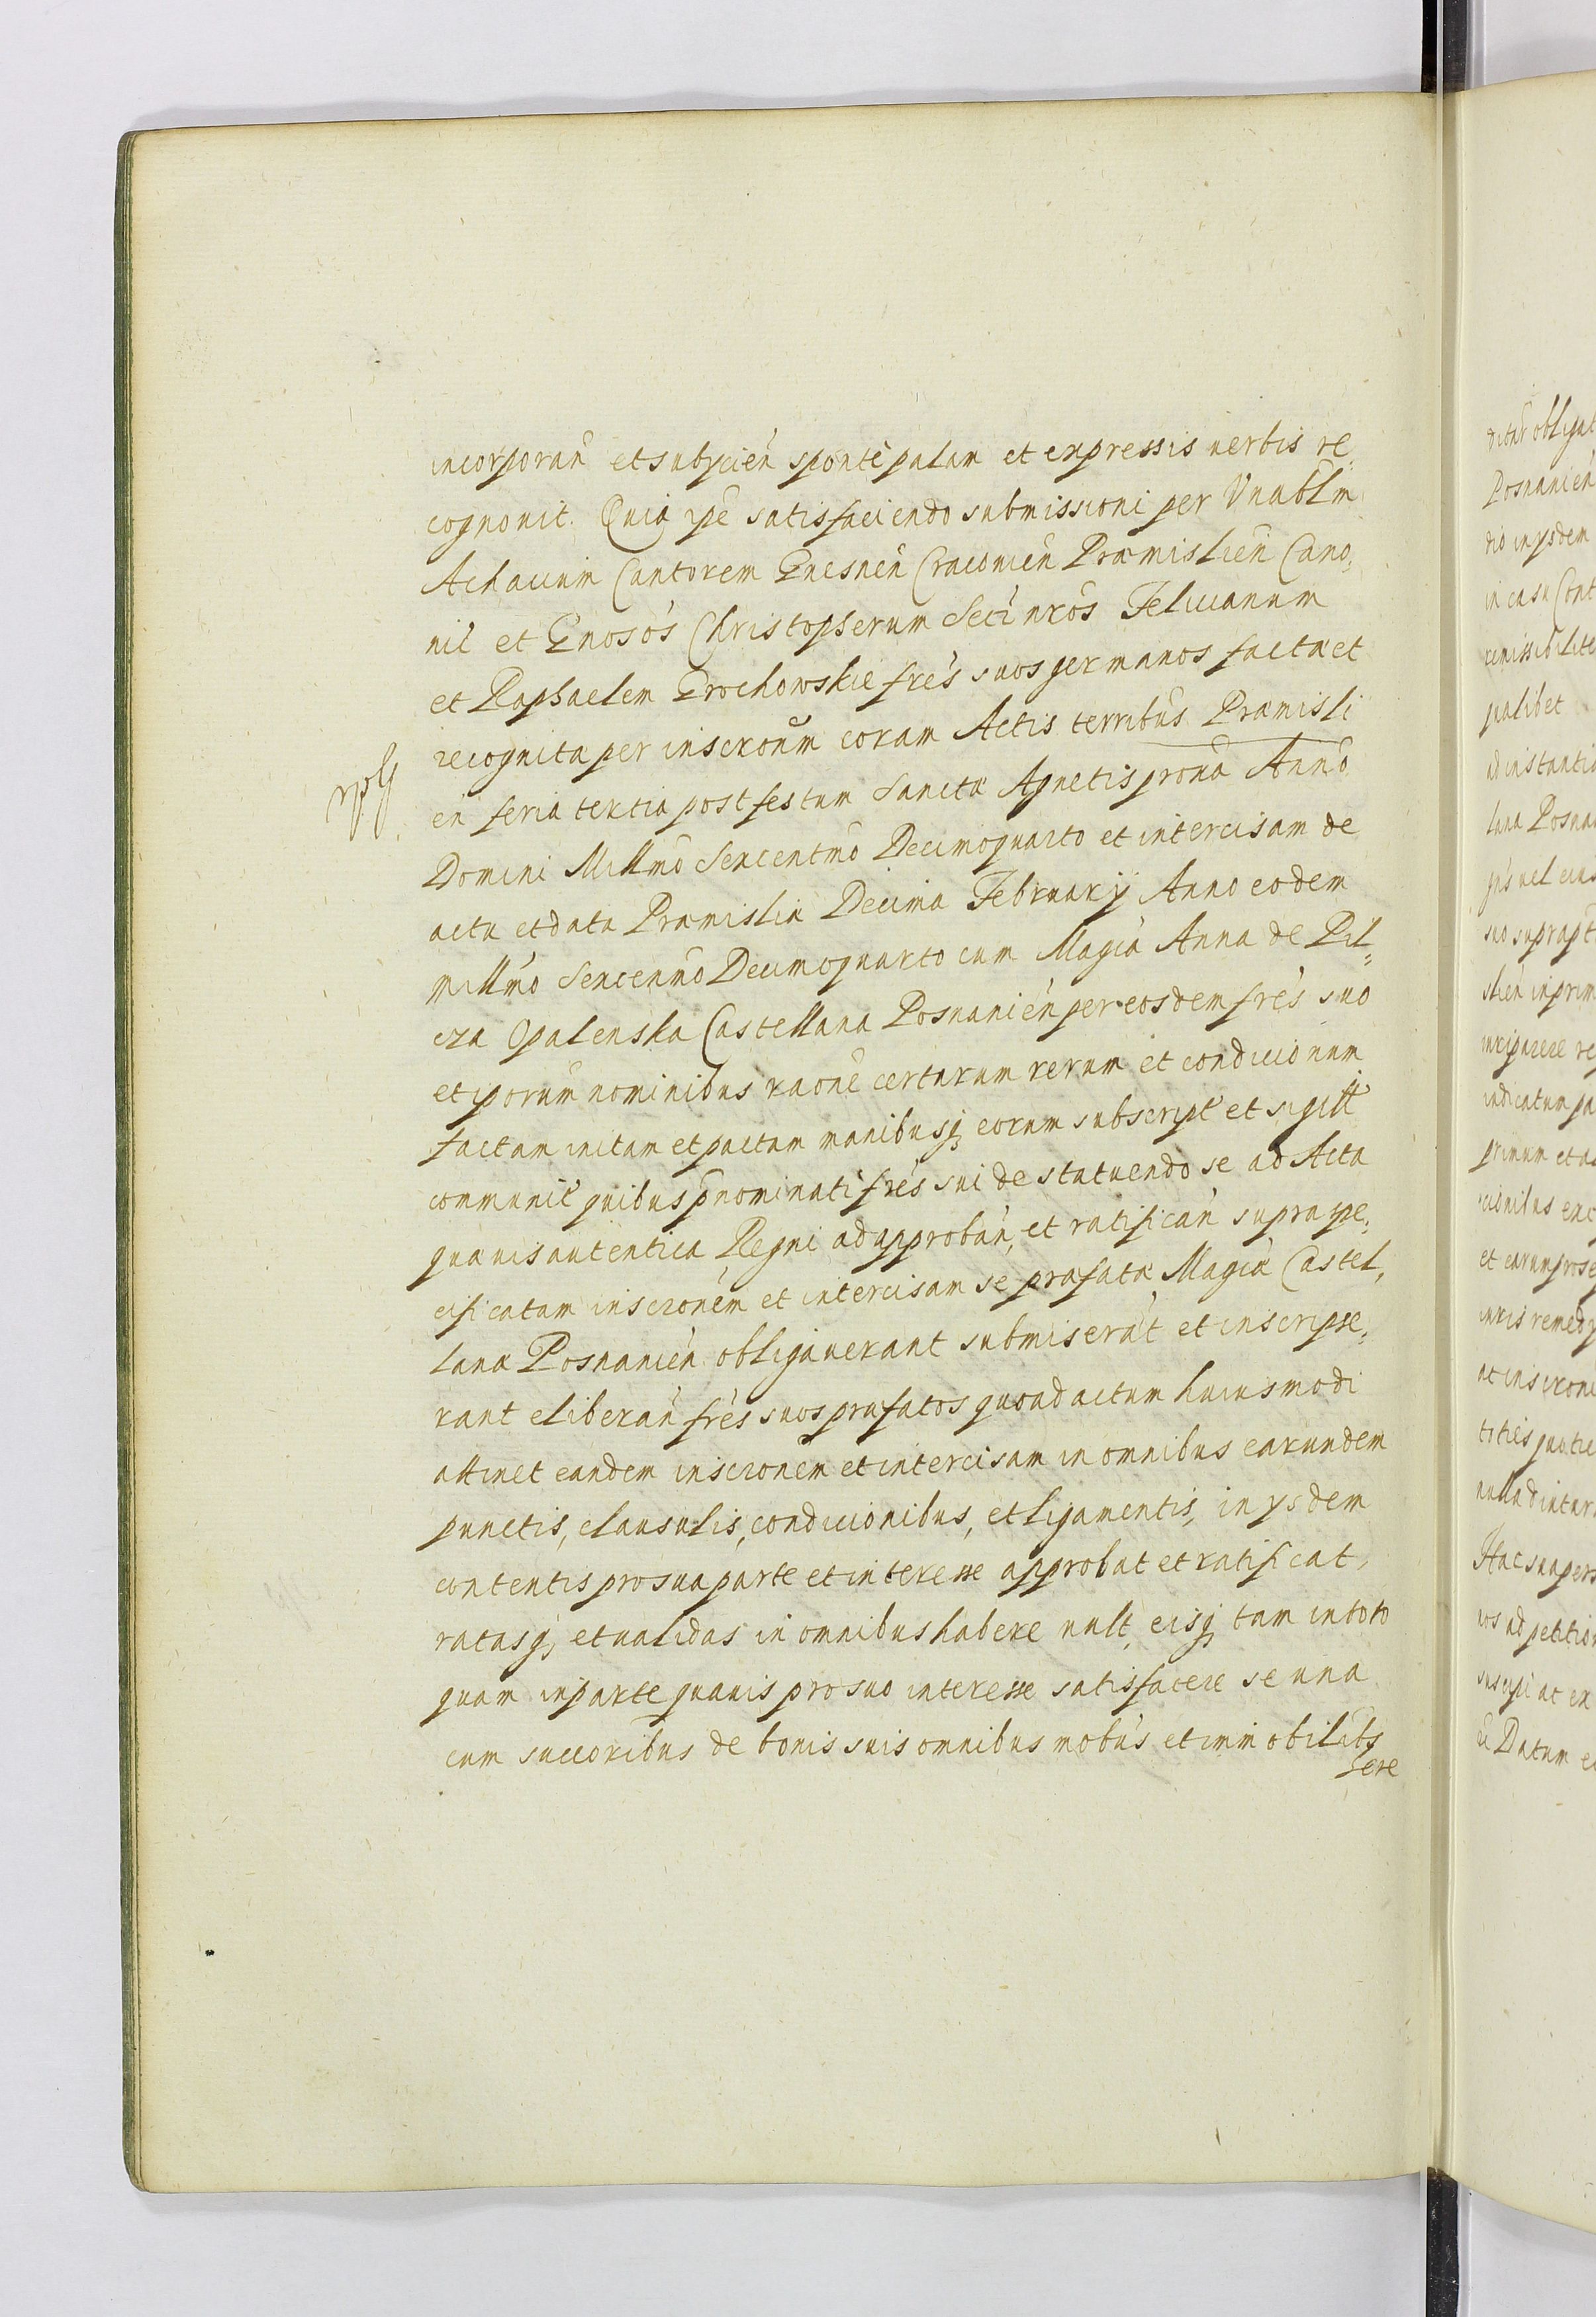 incorporan̄ et subycień sponte palam et expressis uerbis re„
cognouit. Quia ipe satisfaciendo submissioni per Vnablm
Achacium Cantorem Gnesnen̄ Cracouien̄ Præmislien̄ Cano„
nił et Gnosós Christopherum Felicianum
et Raphaelem Grochowskie frés suos germanos factæ et
recognita per inscronem coram Actis terribus Præmisli
en̄ feria tertia post festum Sanctæ Agnetis prona Anno
Domini Millmo Sexcentmo Decimoquarto et intercisam de
actu et data Præmisliæ Decima February Anno eodem
Millmo Sexcenmo Decimoquarto cum Magca Anna de Pil„
cza Opalenska Castellana Posnanień per eosdem frés suo
et iporum nominibus raone certarum rerum et condicionum
factam initam et pactam manibusq eorum subscript et sigill
communit quibus pnominati frés sui de statuendo se ad Acta
quauis autentica Regni ad approbań, et ratifican̄ supraspe„
cificatam inscronem et intercisam se præfatæ Magcæ Castel„
lanæ Posnanień obligauerant submiserat et inscripse„
rant eliberan̄ frés suos præfatos quoad actum huiusmodi
attinet eandem inscronem et intercisam in omnibus earundem
punctis, clausulis, condicionibus, et ligamentis, in ysdem
contentis pro sua parte et interesse approbat et ratificat,
ratasq, et ualidas in omnibus habere uult, eisq tam in toto
quam in parte quauis pro suo interesse satisfacere se una
cum succoribus de bonis suis omnibus mobus et immobilibs
sere

ditur obligat
Posnanień
dio in ysdem
in casu Cont
remissibilite
palibet
ad instantia
lanæ Posna
uel eius
suo suprapt
slien in prim
indicatum pa
primum et
cionibus exc
et earum prose
iuris remedy
at inscrone
toties quotie
nulla dintur
Hac sua pers
ios ad petitio
suscipi at ex
Datum